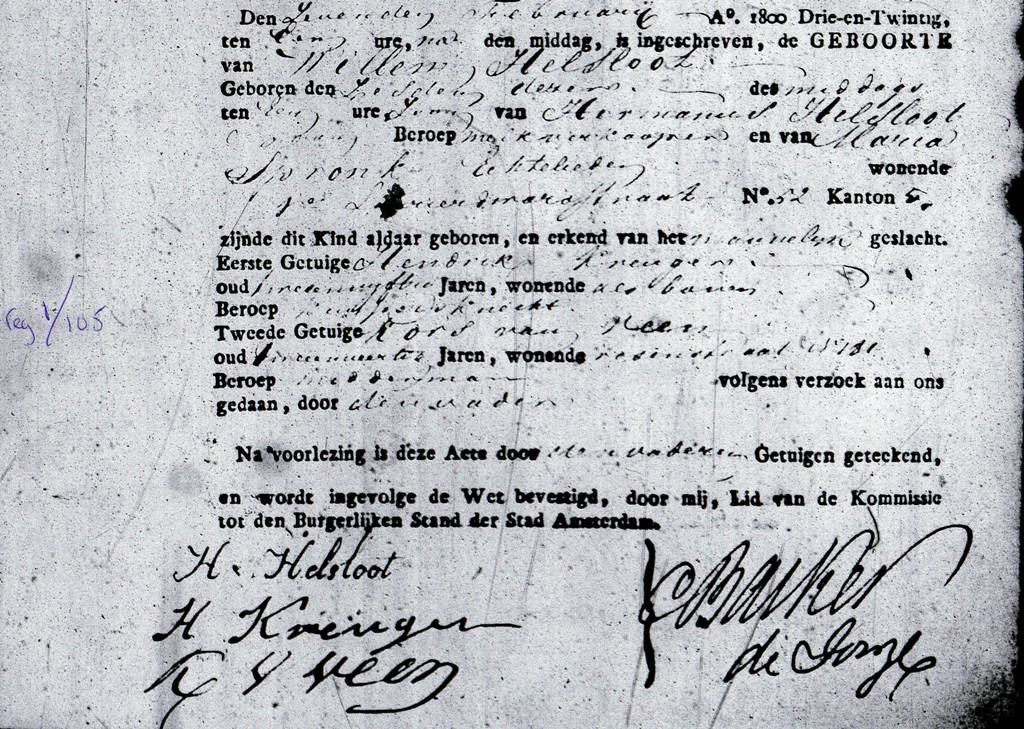 Den Zevenden Februarij A°. 1800 Drie-en-Twintig,
ten Een ure, na den middag, is ingeschreven, de GEBOORTE
van Willem Helsloot
Geboren den Zesden dezer des middags
ten Een ure, Zoon van Hermanus Helsloot
Beroep en van Maria
Spronk Echtelieden wonende
straat N°. 52 Kanton 5.
zijnde dit Kind aldaar geboren, en erkend van het mannelijk geslacht.
Eerste Getuige Hendrik Kreuger
oud Jaren, wonende als boven
Beroep knecht.
Tweede Getuige Kors van Veen
oud Jaren, wonende
Beroep volgens verzoek aan ons
gedaan, door den vader
Na voorlezing is deze Acte door den vader en Getuigen geteekend,
en wordt ingevolge de Wet bevestigd, door mij, Lid van de Kommissie
tot den Burgerlijken Stand der Stad Amsterdam.
reg 1/105
H. Helsloot
H Kreuger
K V Veen
C Bakker
de Jonge